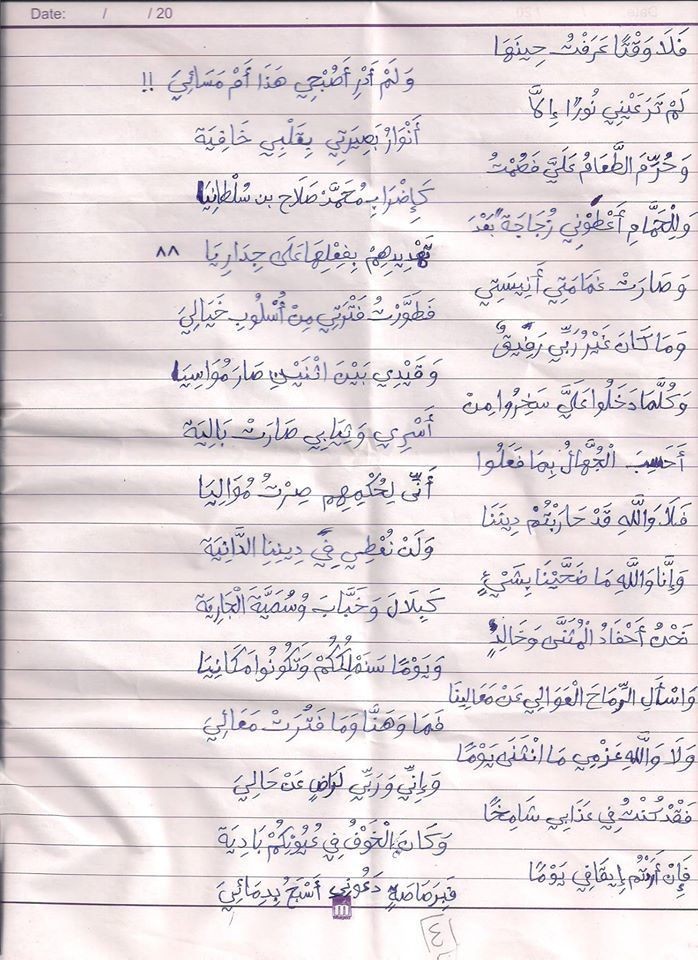 Date: / / 20
فَلَا وَقْتًا عَرَفْتُ حِينَهَا
وَلَمْ أَدْرِ أَصُبْحِي هَذَا أَمْ مَسَائِيَ !!
لَمْ تَرَ عَيْنِي نُورًا إِلَّا
أَنْوَارُ بَصِيرَتِي بِقَلْبِي خَافِيَة
وَحُرِّمَ الطَّعَامُ عَلَيَّ فَصُمْتُ
كَإِضْرَابِ مُحَمَّدْ صَلَاح بن سُلْطَانِيَا
وَلِلْحَمَّامِ أَعْطَوْنِي زُجَاجَة" بَعْدَ
تَهْدِيدِهِمْ بِفِعْلِهَا عَلَى جِدَارِيَا ٨٨
وَصَارَتْ غَمَامَتِي أَنِيسَتِي
فَطَوَّرْتُ فَتْرَتِي مِنْ أُسْلُوبِ خَيَالِيَ
وَمَا كَانَ غَيْرُ رَبِّي رَفِيقٌ
وَقَيْدِي بَيْنَ اثْنَيْنِ صَارَ مُوَاسِيَا
وَكُلَّمَا دَخَلُوا عَلَيَّ سَخِرُوا مِنْ
أَسْرِي وَثِيَابِي صَارَتْ بَالِيَة
أَحَسِبَ الْجُهَّالُ بِمَا فَعَلُوا
أَنِّي لِحُكْمِهِمِ صِرْتُ مُوَالِيَا
فَلَا وَاللَّهِ قَدْ حَارَبْتُمْ دِينَنَا
وَلَنْ نُعْطِيَ فِي دِينِنِا الدَّانِيَة
وَإِنَّا وَاللَّهِ مَا ضَحَّيْنَا بِشَيْءٍ
كَبِلَالَ وَخَبَّابَ وَسُمَيَّةَ الْجَارِيَة
نَحْنُ أَحْفَادُ الْمُثَنَّى وَخَالِدٍ
وَيَوْمًا سَنَمْلِكُكُمْ وَتَكُونُوا مَكَانِيَا
وَاسْأَلِ الرِّمَاحَ الْعَوَالِي عَنْ مَعَالِينَا
فَمَا وَهَنَّا وَمَا فَتُرَتْ مَعَالِيَ
وَلَا وَاللَّهِ عَزْمِي مَا انْثَنَى يَوْمًا
وَإِنِّي وَرَبِّي لَرَاضٍ عَنْ حَالِيَ
فَقَدْ كُنْتُ فِي عَذَابِي شَامِخًا
وَكَانَ الْخَوْفُ فِي عُيُونِكُمْ بَادِيَة
فَإِنْ أَرَدْتُمْ إِيقَافِي يَوْمًا
فَبِرَصَاصَةٍ دَعُونِي أَسْبَحُ بِدِمَائِيَ
٤